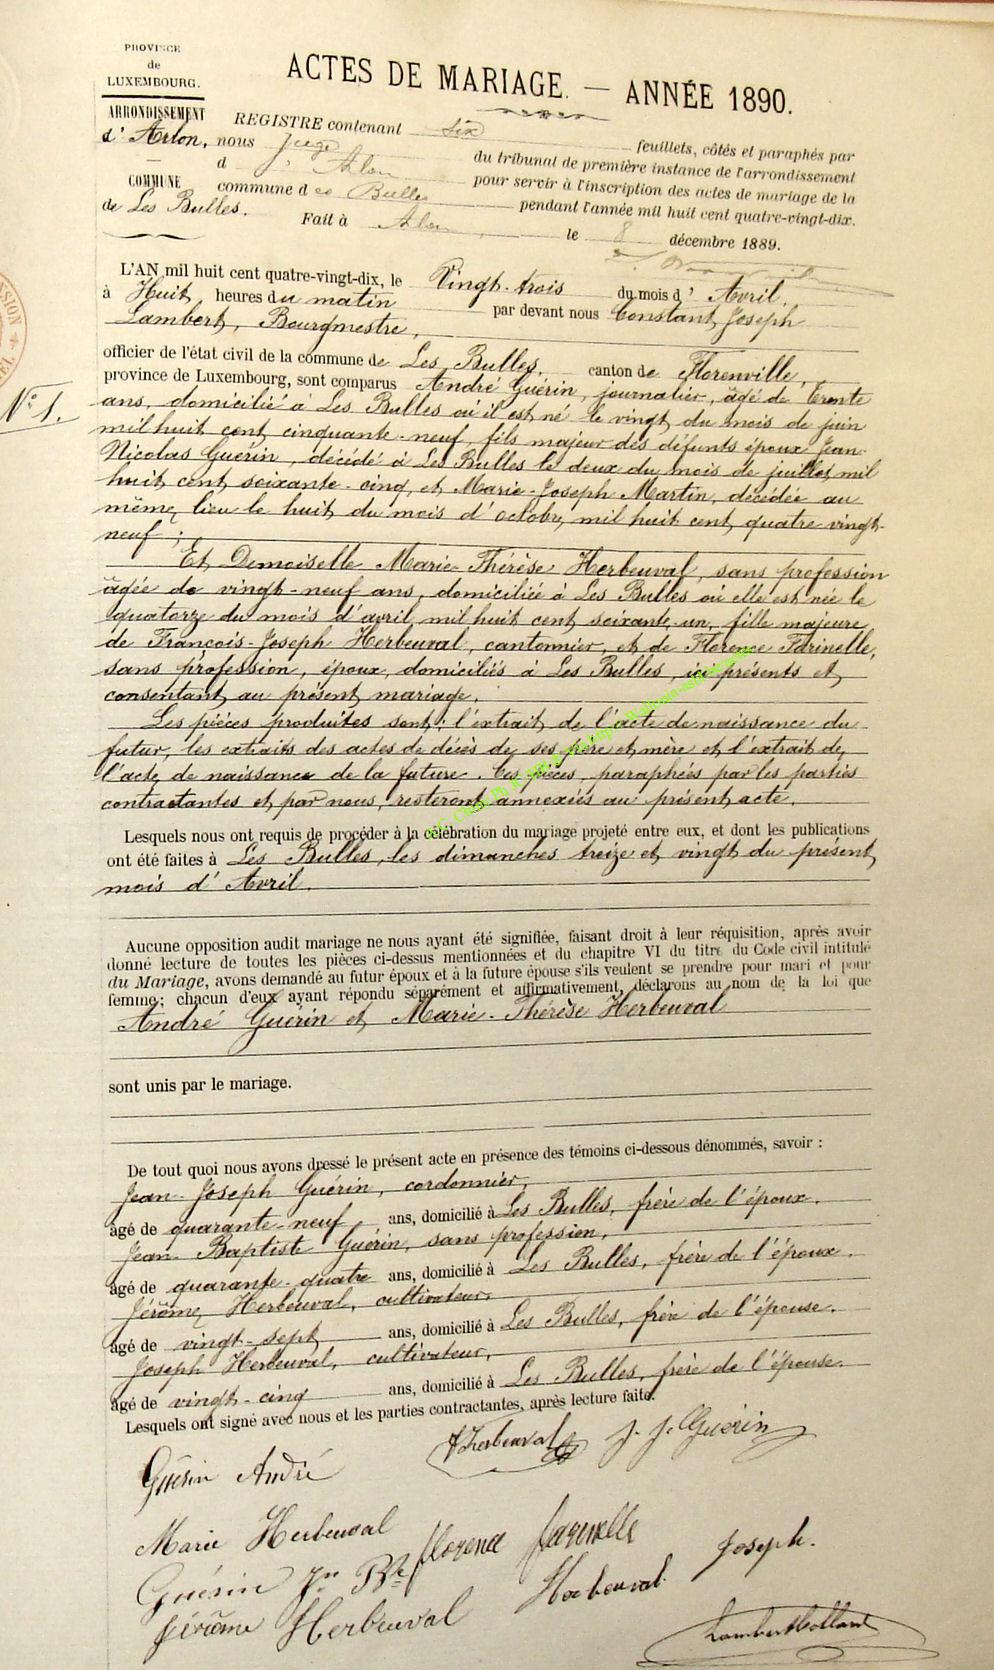 PROVINCE
de
LUXEMBOURG.
ARRONDISSEMENT
d'Arlon.
COMMUNE
de Les Bulles.
ACTES DE MARIAGE. — ANNÉE 1890.
REGISTRE contenant six feuillets, côtés et paraphés par
nous Juge du tribunal de première instance de l'arrondissement
d'Arlon pour servir à l'inscription des actes de mariage de la
commune de Les Bulles pendant l'année mil huit cent quatre-vingt-dix.
Fait à Arlon, le 8 décembre 1889.
N° 1.
L'AN mil huit cent quatre-vingt-dix, le Vingt-trois du mois d'Avril,
à Huit heures du matin par devant nous Constant Joseph
Lambert, Bourgmestre,
officier de l'état civil de la commune de Les Bulles, canton de Florenville,
province de Luxembourg, sont comparus André Guérin, journalier, âgé de trente
ans, domicilié à Les Bulles où il est né le vingt du mois de juin
mil huit cent cinquante-neuf, fils majeur des défunts époux Jean-
Nicolas Guérin, décédé à Les Bulles le deux du mois de juillet mil
huit cent soixante-cinq, et Marie-Joseph Martin, décédée au
même lieu le huit du mois d'octobre mil huit cent quatre vingt-
neuf ;
Et Demoiselle Marie-Thérèse Herbeuval, sans profession
âgée de vingt-neuf ans, domiciliée à Les Bulles où elle est née le
quatorze du mois d'avril mil huit cent soixante-un, fille majeure
de François-Joseph Herbeuval, cantonnier, et de Florence Farinelle,
sans profession, époux domiciliés à Les Bulles, ici présents et
consentant au présent mariage.
Les pièces produites sont : l'extrait de l'acte de naissance du
futur, les extraits des actes de décès de ses père et mère et l'extrait de
l'acte de naissance de la future. Ces pièces, paraphées par les parties
contractantes et par nous, resteront annexées au présent acte.
Lesquels nous ont requis de procéder à la célébration du mariage projeté entre eux, et dont les publications
ont été faites à Les Bulles, les dimanches treize et vingt du présent
mois d'Avril.
Aucune opposition audit mariage ne nous ayant été signifiée, faisant droit à leur réquisition, après avoir
donné lecture de toutes les pièces ci-dessus mentionnées et du chapitre VI du titre du Code civil intitulé
du Mariage, avons demandé au futur époux et à la future épouse s'ils veulent se prendre pour mari et pour
femme; chacun d'eux ayant répondu séparément et affirmativement, déclarons au nom de la loi que
André Guérin et Marie-Thérèse Herbeuval
sont unis par le mariage.
De tout quoi nous avons dressé le présent acte en présence des témoins ci-dessous dénommés, savoir :
Jean-Joseph Guérin, cordonnier,
âgé de quarante-neuf ans, domicilié à Les Bulles, frère de l'époux.
Jean-Baptiste Guérin, sans profession,
âgé de quarante-quatre ans, domicilié à Les Bulles, frère de l'époux.
Jérôme Herbeuval, cultivateur,
âgé de vingt-sept ans, domicilié à Les Bulles, frère de l'épouse.
Joseph Herbeuval, cultivateur,
âgé de vingt-cinq ans, domicilié à Les Bulles, frère de l'épouse.
Lesquels ont signé avec nous et les parties contractantes, après lecture faite.
Guérin André Herbeuval J. J. Guérin
Marie Herbeuval florence farinelle Joseph.
Guérin Jn Bte Herbeuval
Jérôme Herbeuval Lambert